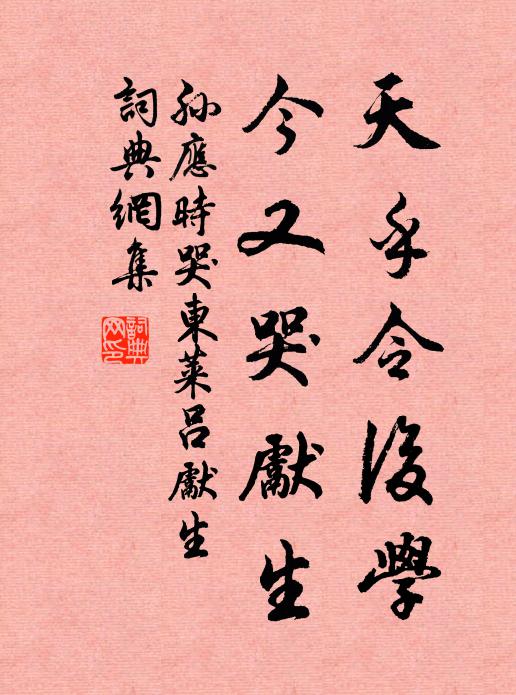 天乎令後學
今又哭獻生
孫應時哭東萊呂獻生
詞典網集
詞典网印